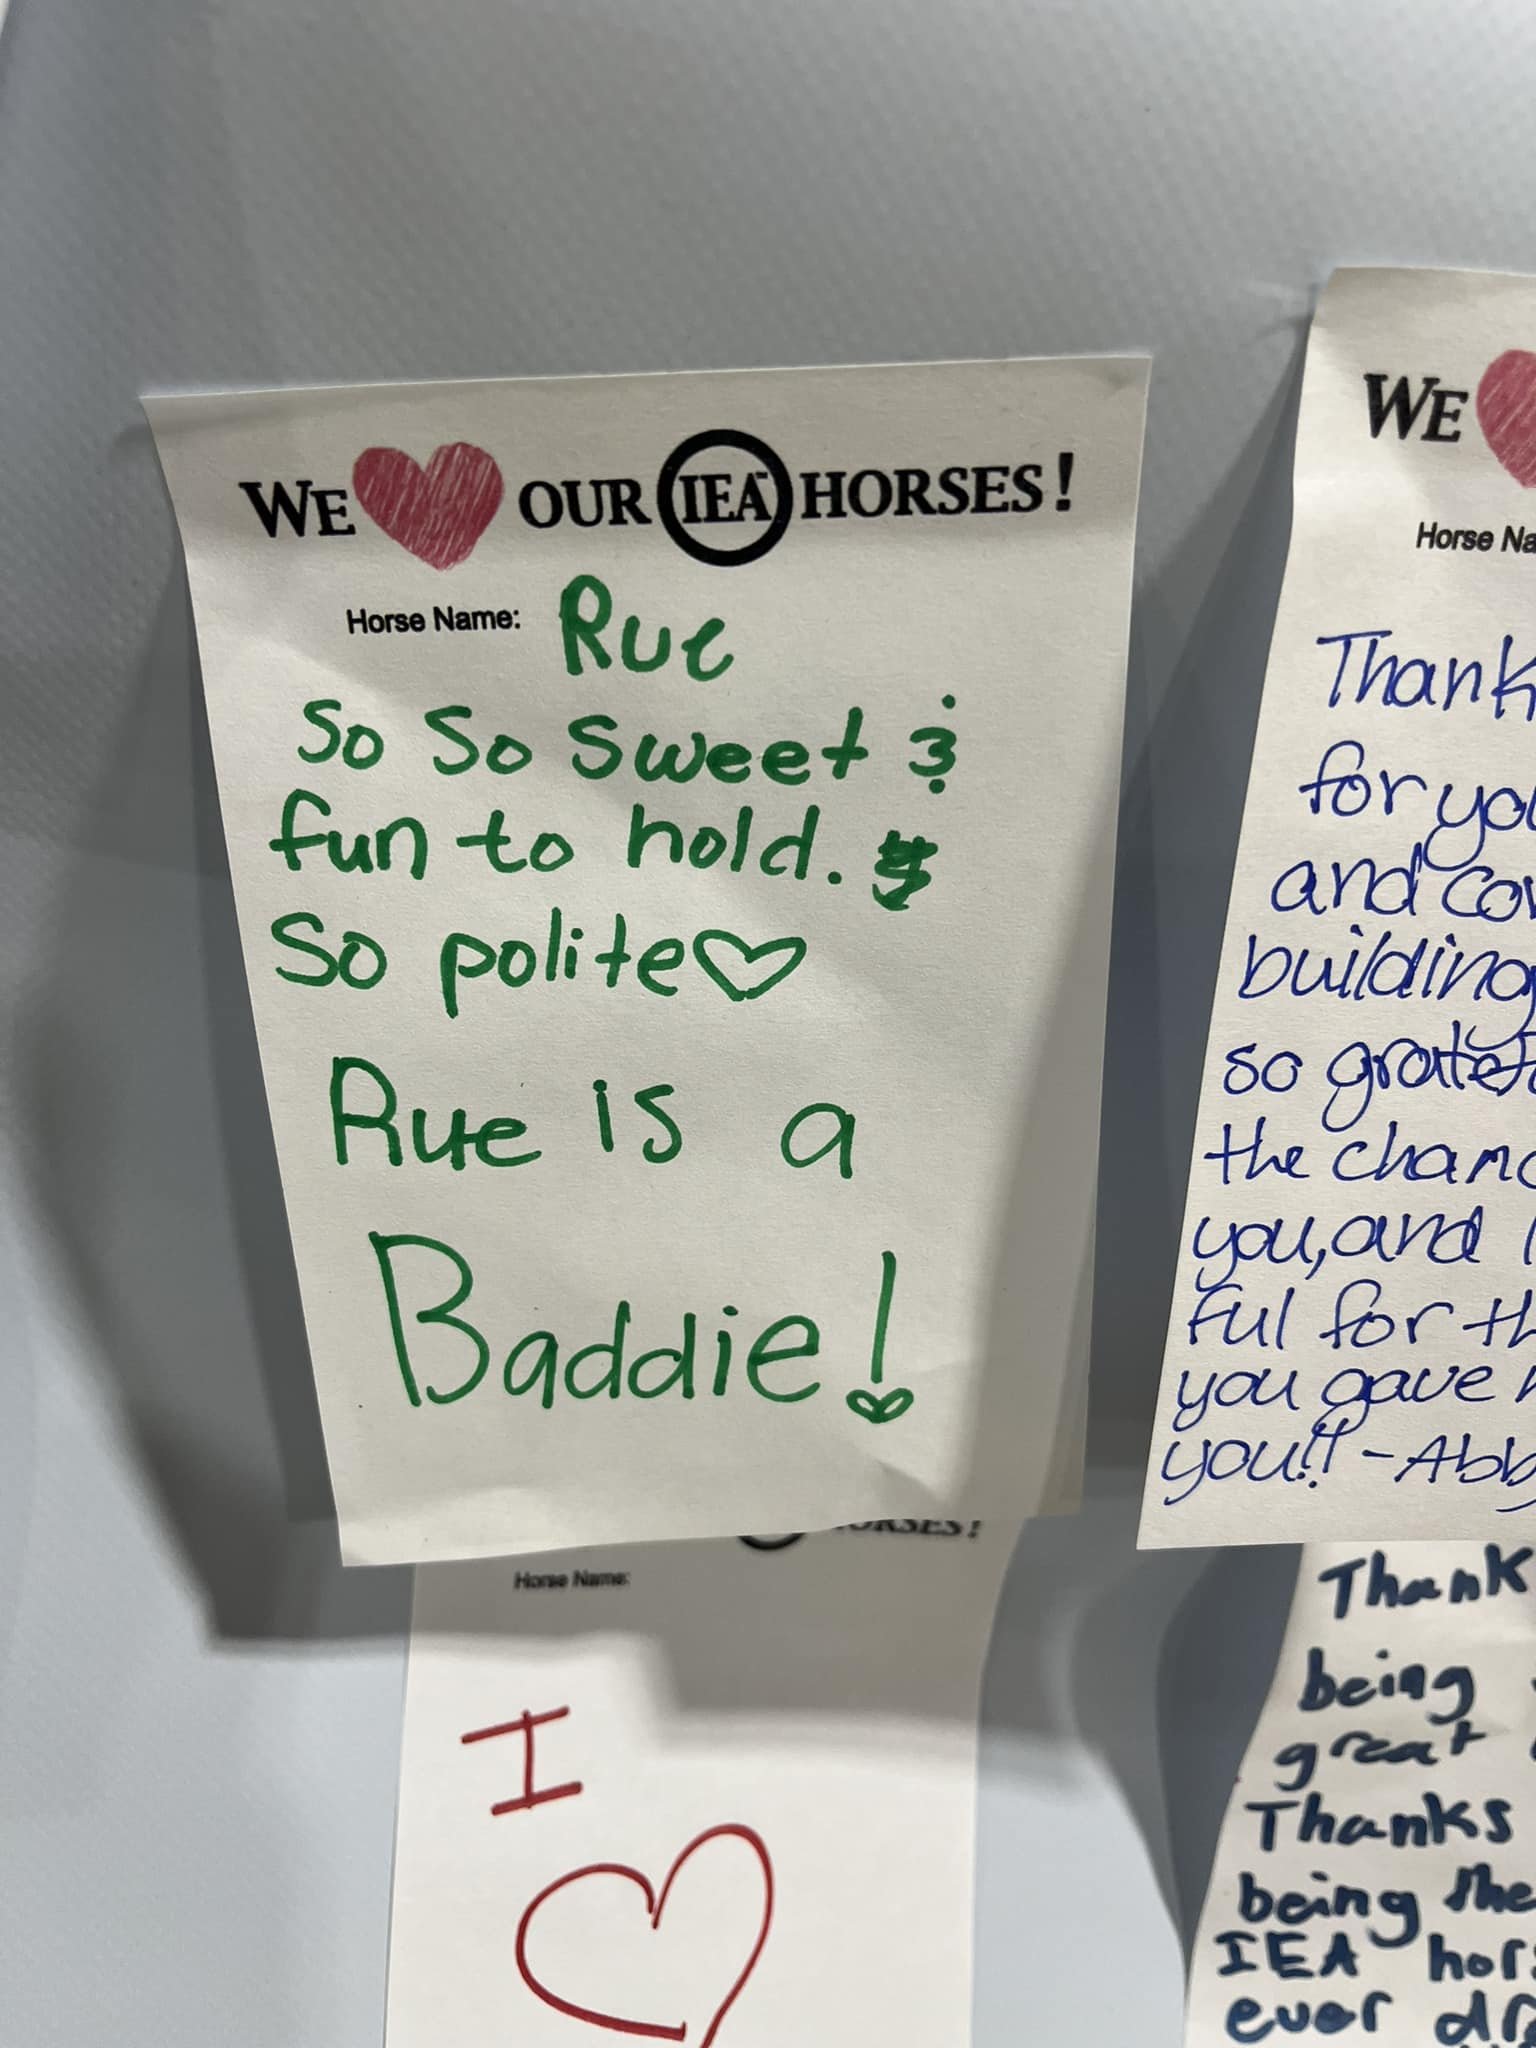 WE OUR IEA HORSES!
Horse Name: Rue
So So Sweet &
fun to hold.
So polite
Rue is a
Baddie!
HORSES!
Horse Name:
I
WE
Horse
Thank
for
and
building
so
the
you, and
ful for
you gave
you!! -
Thank
being
great
Thanks
being the
IEA
ever